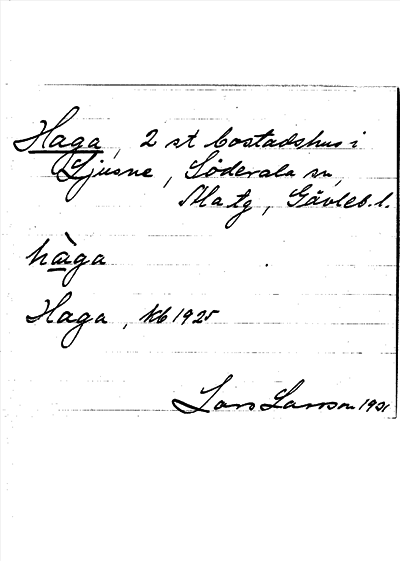 Haga, 2 st bostadshus i
Ljusne, Söderala sn,
Ala tg, Gävleb. l.
hàga
Haga, kb 1925
Lars Larsson 1931